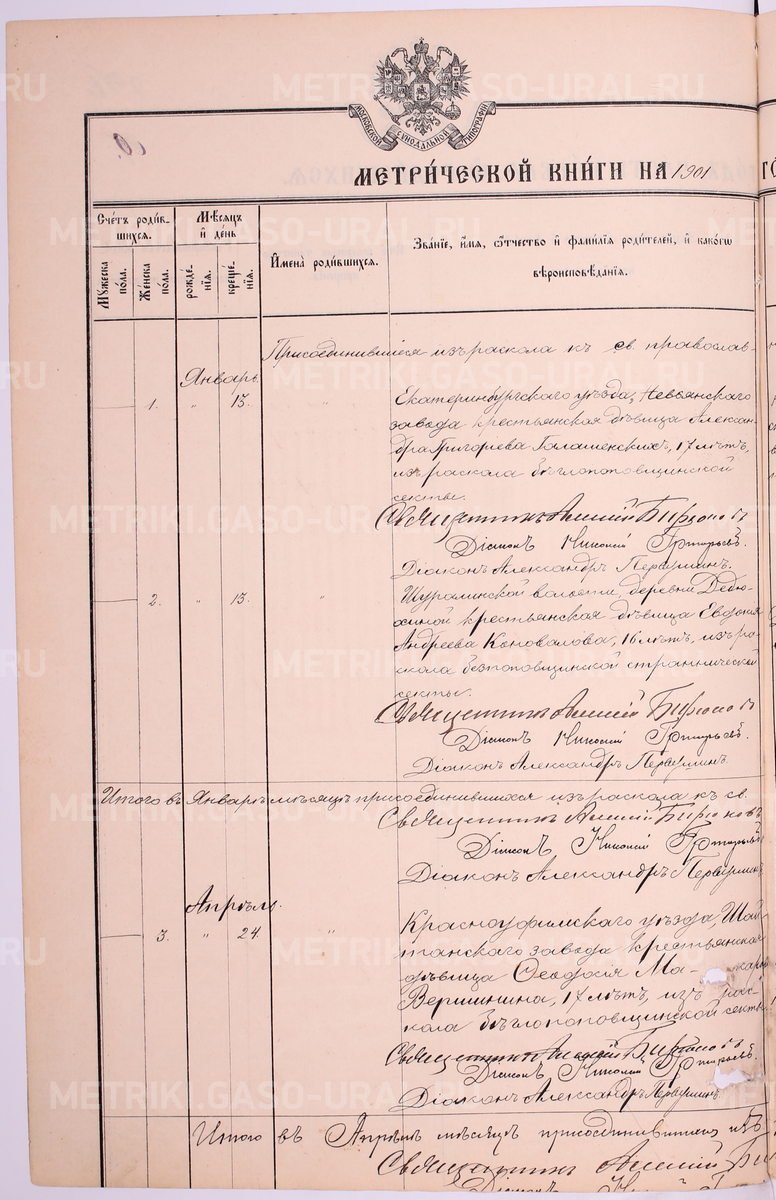 МОСКОВСКОЙ СѴНОДАЛЬНОЙ ТИПОГРАФІИ
МЕТРИ́ЧЕСКОЙ КНИ́ГИ НА 1901
Сче́тъ роди́в-
шихся.
Мѣсяцъ
и де́нь
Имена̀ роди́вшихся.
Зва́ніе, и́мя, ѻ҆́тчество и фами́лія роди́телей, и како́гѡ
вѣроисповѣ́данія.
Му́жеска
по́ла.
Же́нска
по́ла.
рожде́-
нія.
креще́-
нія.
Присоединившіеся изъ раскола къ св. православ-
Январь.
1. " 13. " Екатеринбургскаго уѣзда, Невьянскаго
завода крестьянская дѣвица Алексан-
дра Григорьева Галашенскихъ, 17 лѣтъ,
изъ раскола бѣглопоповщинской
секты.
Священникъ Алексій Бирюковъ
Діаконъ Николай Григорьевъ.
Діаконъ Александръ Первушинъ.
2. " 13. " Шуралинской волости, деревни Дедю-
хиной крестьянская дѣвица Евдокія
Андреева Коновалова, 16 лѣтъ, изъ ра-
скола безпоповщинской страннической
секты.
Священникъ Алексій Бирюковъ
Діаконъ Николай Григорьевъ.
Діаконъ Александръ Первушинъ.
Итого въ Январѣ мѣсяцѣ присоединившихся изъ раскола къ св.
Священникъ Алексій Бирюковъ
Діаконъ Николай Григорьевъ
Діаконъ Александръ Первушинъ
Апрѣль.
3. " 24. " Красноуфимскаго уѣзда, Шай-
танскаго завода крестьянская
дѣвица Ѳеодосія
Вершинина, 17 лѣтъ, изъ рас-
кола бѣглопоповщинской секты
Священникъ Алексій Бирюковъ
Діаконъ Николай Григорьевъ.
Діаконъ Александръ Первушинъ
Итого въ Апрѣлѣ мѣсяцѣ присоединившихся изъ
Священникъ Алексій
METRIKI.GASO-URAL.RU